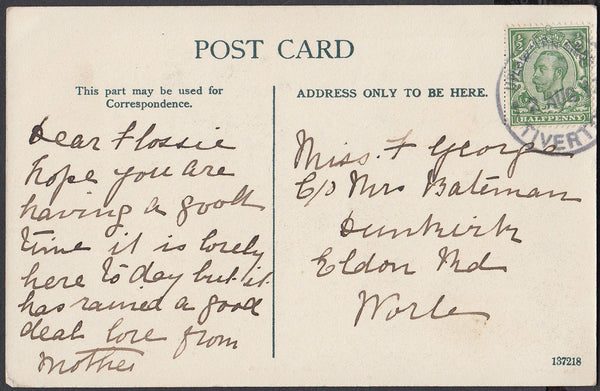 POST CARD
This part may be used for
Correspondence.
Dear Flossie
hope you are
having a good
time it is lovely
here to day but it
has rained a good
deal love from
Mother
ADDRESS ONLY TO BE HERE.
Miss F George
C/o Mrs Bateman
Dunkirk
Eldon Rd
Worle
HALFPENNY
AU
TIVERT
137218